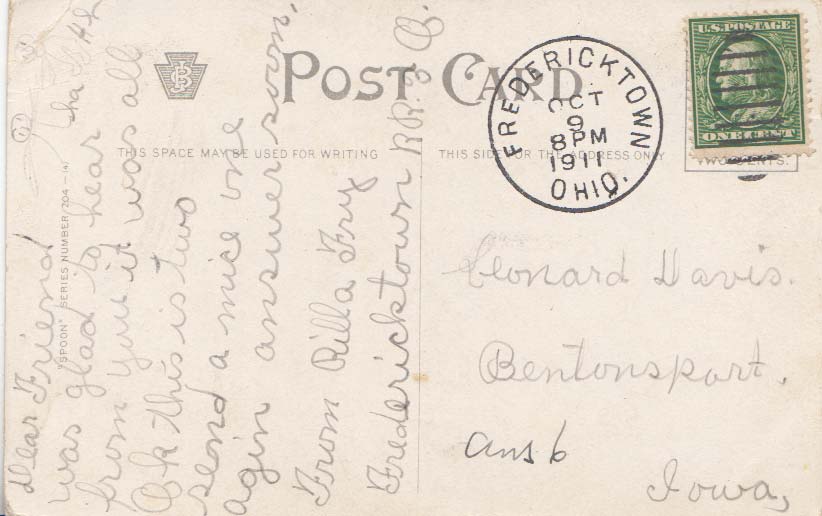 POST CARD
THIS SPACE MAY BE USED FOR WRITING
THIS SIDE FOR THE ADDRESS ONLY
U.S. POSTAGE
ONE CENT
TWO CENTS.
FREDERICKTOWN
OCT
9
8 PM
1911
OHIO.
"SPOON" SERIES NUMBER/204
Dear Friend
was glad to hear
from you it was all
Ok this is two
send a nice one
agin answer soon.
From Rilla Fry
Fredericktown RR. 3 O.
Leonard Davis.
Bentonsport.
Ans 6
Iowa,